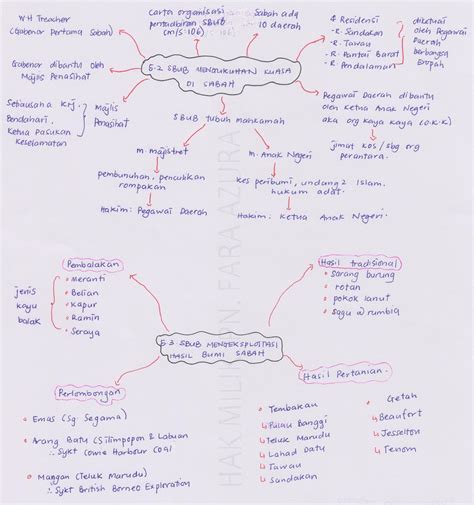 WH Treacher
(Gabenor Pertama Sabah)
Carta organisasi
pertadbiran SBUB
(m/s: 106)
Sabah ada
10 daerah
4 Residensi
-R. Sandakan
-R. Tawau
-R. Pantai Barat
-R. Pendalaman
diketuai
oleh Pegawai
Daerah
berbangsa
Eropah
Gabenor dibantu oleh
Majlis Penasihat
5.2 SBUB MENGUKUHKAN KUASA
DI SABAH
Pegawai Daerah dibantu
oleh Ketua Anak Negeri
aka org kaya kaya (O.K.K)
jimat kos / sbg org
perantara.
Setiausaha Krj.
Bendahari,
Ketua Pasukan
Keselamatan
Majlis
Penasihat
SBUB tubuh mahkamah
m. majistret
pembunuhan, pencubikan
rompakan
Hakim: Pegawai Daerah
m. Anak Negeri
kes peribumi, undang2 Islam.
hukum adat.
Hakim: Ketua Anak Negeri.
HAK MILIK CKN FARA AZIRA
Pembalakan
jenis
kayu
balak
• Meranti
• Belian
• Kapur
• Ramin
• Seraya
Hasil tradisional
• sarang burung
• rotan
• pokok lanut
• sagu rumbia
5.3 SBUB MENGEKSPLOITASI
HASIL BUMI SABAH
Perlombongan
• Emas (Sg. Segama)
• Arang Batu (Silimpopon & Labuan
∴ Sykt Cowie Harbour Coal
• Mangan (Teluk Marudu)
∴ Sykt British Borneo Exploration
Hasil Pertanian.
• Tembakau
Pulau Banggi
Teluk Marudu
Lahad Datu
Tawau
Sandakan
• Getah
Beaufort
Jesselton
Tenom